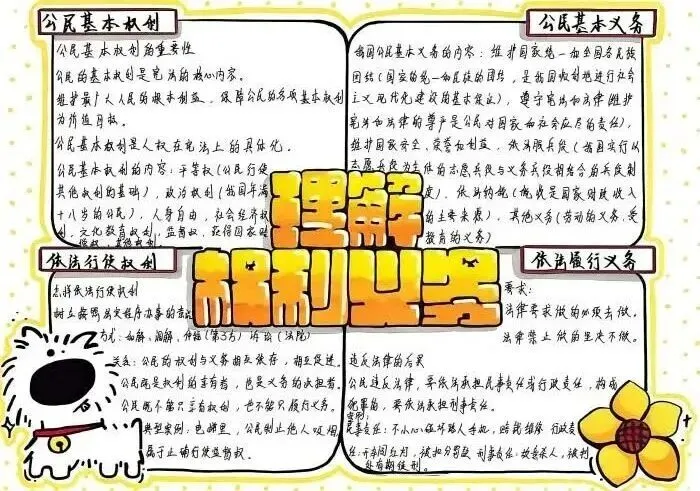 公民基本权利
公民基本权利的重要性
公民的基本权利是宪法的核心内容。
维护最广大人民的根本利益，保障公民的各项基本权利
为价值目标。
公民基本权利是人权在宪法上的具体化。
公民基本权利的内容：平等权(公民行使
其他权利的基础)，政治权利(我国年满
十八岁的公民)，人身自由，社会经济权
利，文化教育权利，监督权，获得国家赔
公民基本义务
我国公民基本义务的内容：维护国家统一和全国各民族
团结(国家的统一和民族的团结，是我国顺利地进行社会
主义现代化建设的基本保证)，遵守宪法和法律(维护
宪法和法律的尊严是公民对国家和社会应尽的责任)，
维护国家安全、荣誉和利益，依法服兵役(我国实行以
志愿兵役为主体的志愿兵役与义务兵役相结合的兵役制
度)，依法纳税(税收是国家财政收入
的主要来源)，其他义务(劳动的义务、受
教育的义务)
理解
权利义务
依法行使权利
怎样依法行使权利
树立按照法定程序办事的
方式：和解、调解、仲裁(第3方) 诉讼(法院)
关系：公民的权利与义务相互依存，相互促进。
公民既是权利的享有者，也是义务的承担者。
公民既不能只享有权利，也不能只履行义务。
典型案例：电梯里，公民制止他人吸烟
属于正确行使监督权。
依法履行义务
要求：
法律要求做的必须去做。
法律禁止做的坚决不做。
违反法律的后果
公民违反法律，要依法承担民事责任或行政责任，构成
犯罪的，要依法承担刑事责任。
案例：
民事责任：不小心碰坏路人手机，赔钱 行政责
任：开车闯红灯，被扣分罚款 刑事责任：故意杀人，被判
处有期徒刑。